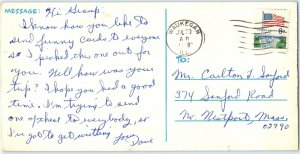 MESSAGE: Hi Gramp.
I know how you like to
send funny cards to everyone
so I picked this one out for
you. Well how was your
trip? I hope you had a good
time. I'm trying to send
one of these to everybody, so
I've got to get writing
Love Dave
WAUKEGAN
JUL 13
PM
IL
8c
TO:
Mr. Carlton L Sanford
374 Sanford Road
No. Westport, Mass.
02790